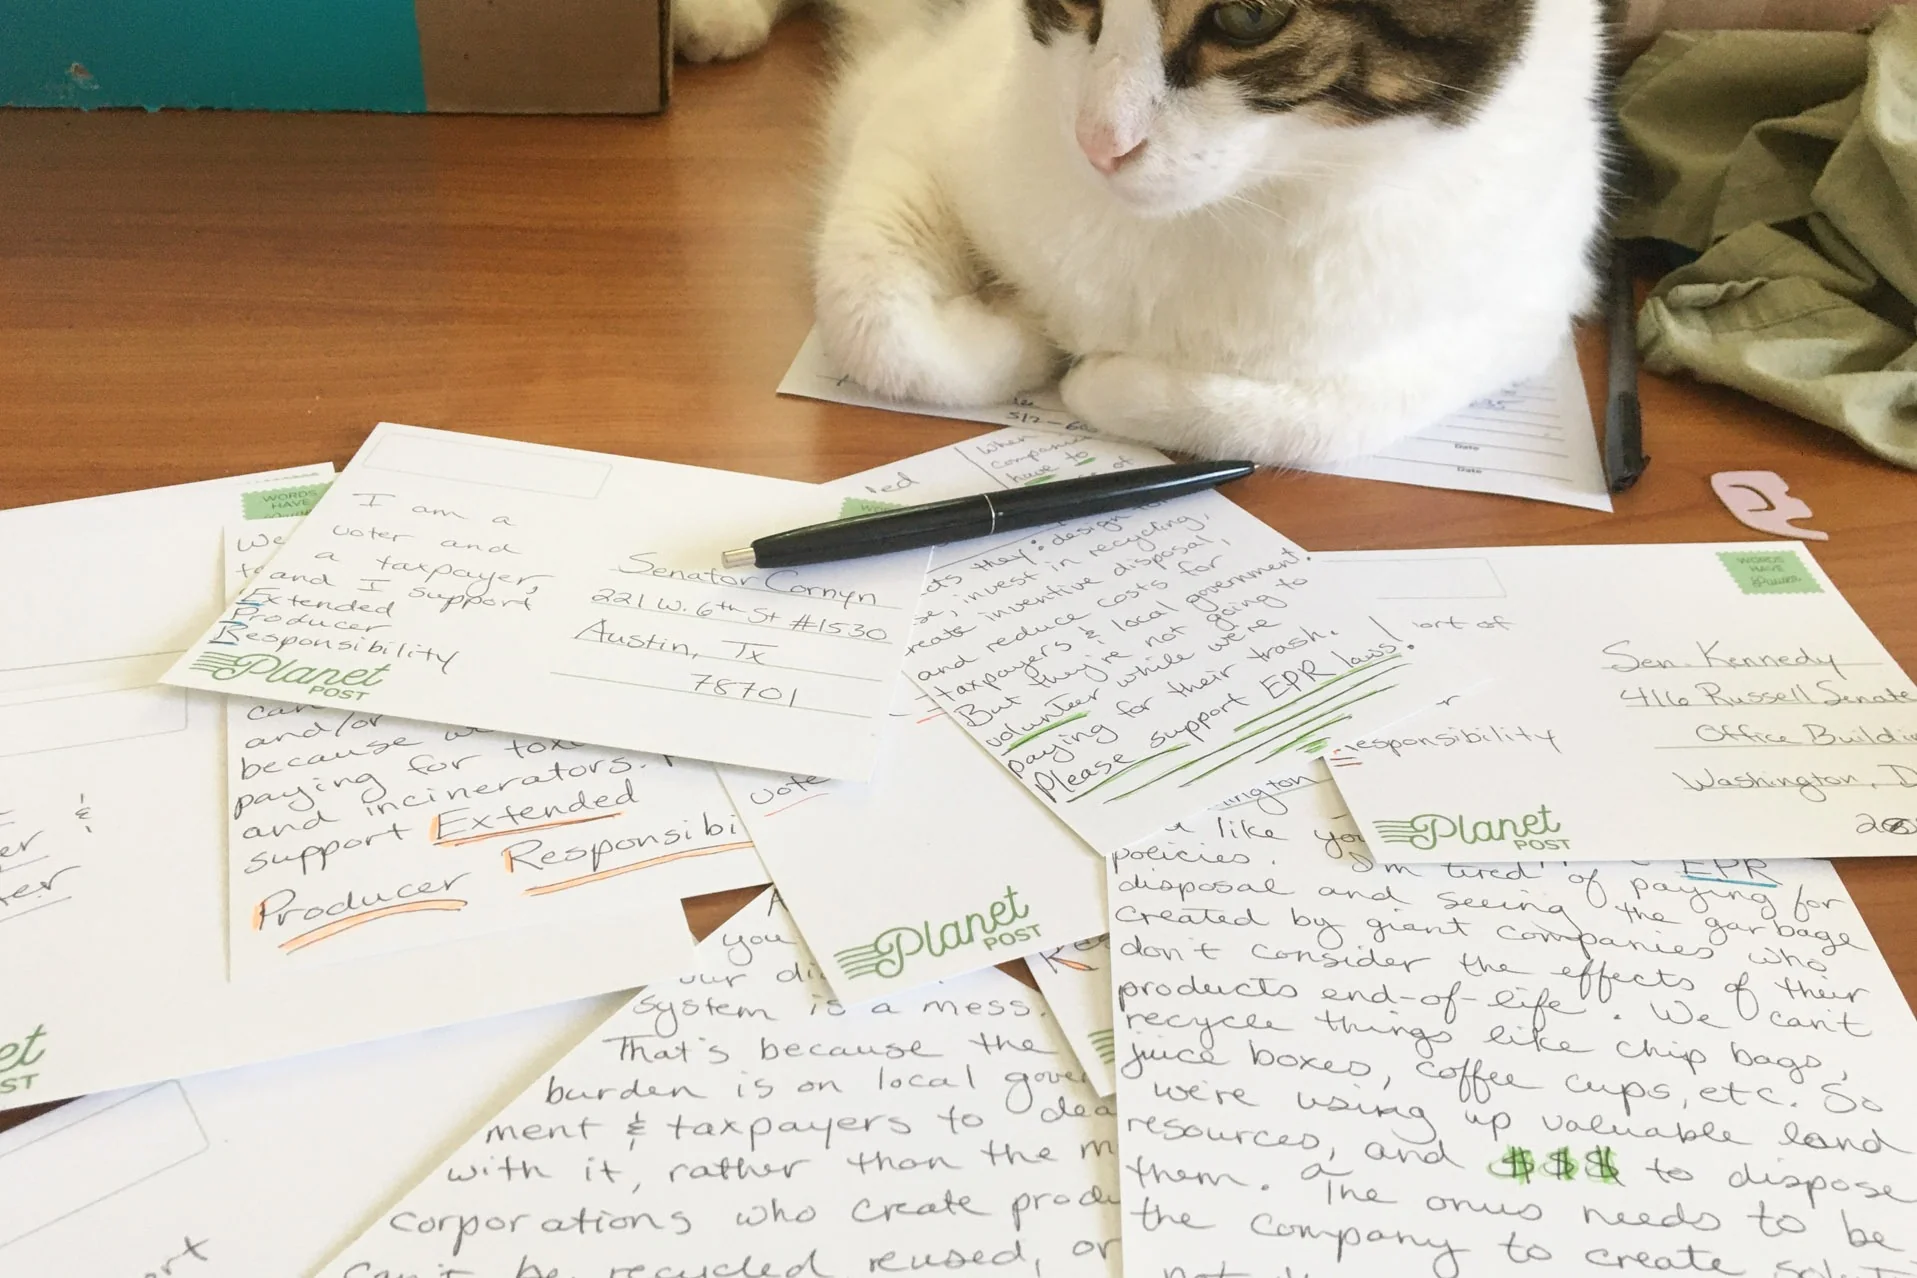 WORDS
HAVE
We
I am a
voter and
a taxpayer,
and I support
Extended
Producer
Responsibility
Planet
POST
Senator Cornyn
221 W. 6th St #1530
Austin, Tx
78701
and/or
because
paying for
and incinerators.
support Extended
Producer Responsibi
vote
512-
Date
Date
When
companies
have to
of
they: design
invest in recycling,
create inventive disposal,
and reduce costs for
taxpayers & local government.
But they're not going to
volunteer while we're
paying for their trash.
Please support EPR laws!
Planet
POST
WORDS
HAVE
Power
ort of
responsibility
Sen. Kennedy
416 Russell Senate
Office Buildi
Washington, D
Planet
POST
ington
like you
policies. EPR
I'm tired of paying for
disposal and seeing the garbage
created by giant companies who
don't consider the effects of their
products end-of-life. We can't
recycle things like chip bags,
juice boxes, coffee cups, etc. So
we're using up valuable land
resources, and $$$ to dispose
them. The onus needs to be
the company to create
you
our di
system is a mess.
That's because the
burden is on local gover
ment & taxpayers to dea
with it, rather than the m
corporations who create produ
can't be recycled reused, or
&
er
et
ST